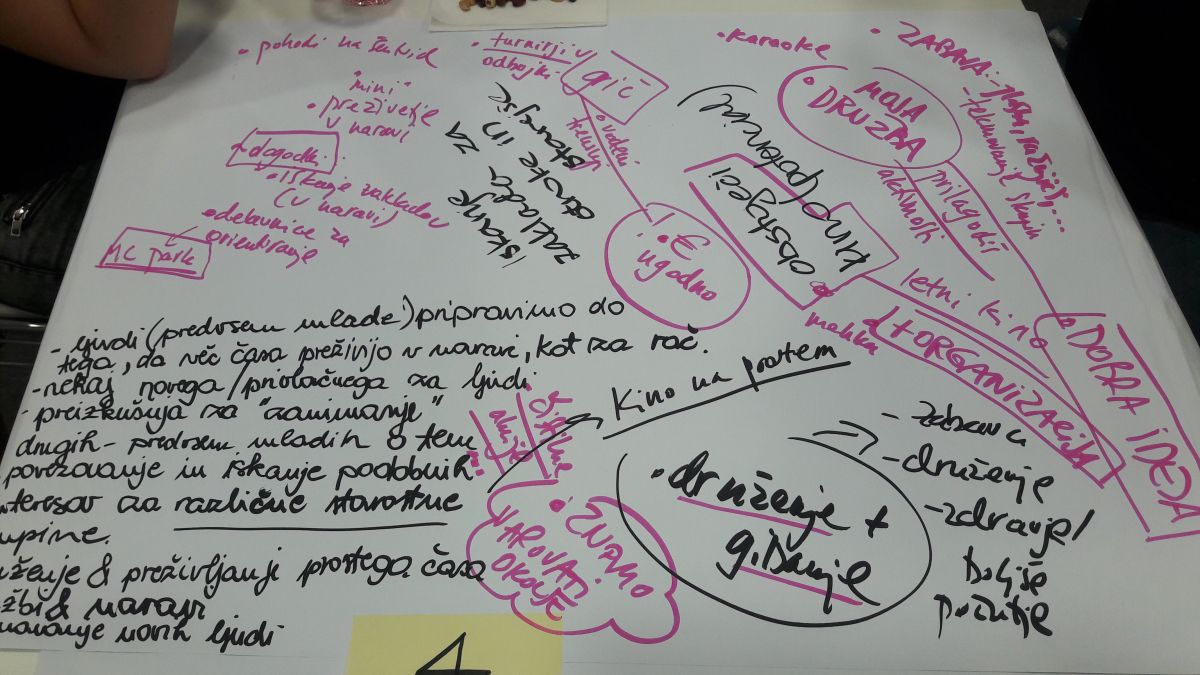 • pohodi na Šentvid
"mini"
• preživetje
v naravi
dogodki
• iskanje zakladov
(v naravi)
• delavnice za
orientiranje
MC park
• turnirji v
odbojki
grič
• vodeni
treningi
iskanje
zaklada za
otroke in
starejše
• € !
ugodno
obstoječi
kino (potencial)
• karaoke
• ZABAVA:
- tekmovanje
• MOJA
DRUŽBA
prilagodiš
aktivnosti
letni kino
d+ORGANIZACIJA
• DOBRA IDEJA
- ljudi (predvsem mlade) pripravimo do
tega, da več časa preživijo v naravi, kot za rač.
- nekaj novega/privlačnega za ljudi
- preizkušnja za "zanimanje"
drugih - predvsem mladih o tem
povezovanje in iskanje podobnih
interesov za različne starostne
upine.
uženje & preživljanji prostega časa
žbi & naravi
novih ljudi
Kino na prostem
• ZNAMO
VAROVATI
OKOLJE
• druženje +
gibanje
- zabava
- druženje
- zdravje/
boljše
počutje
4